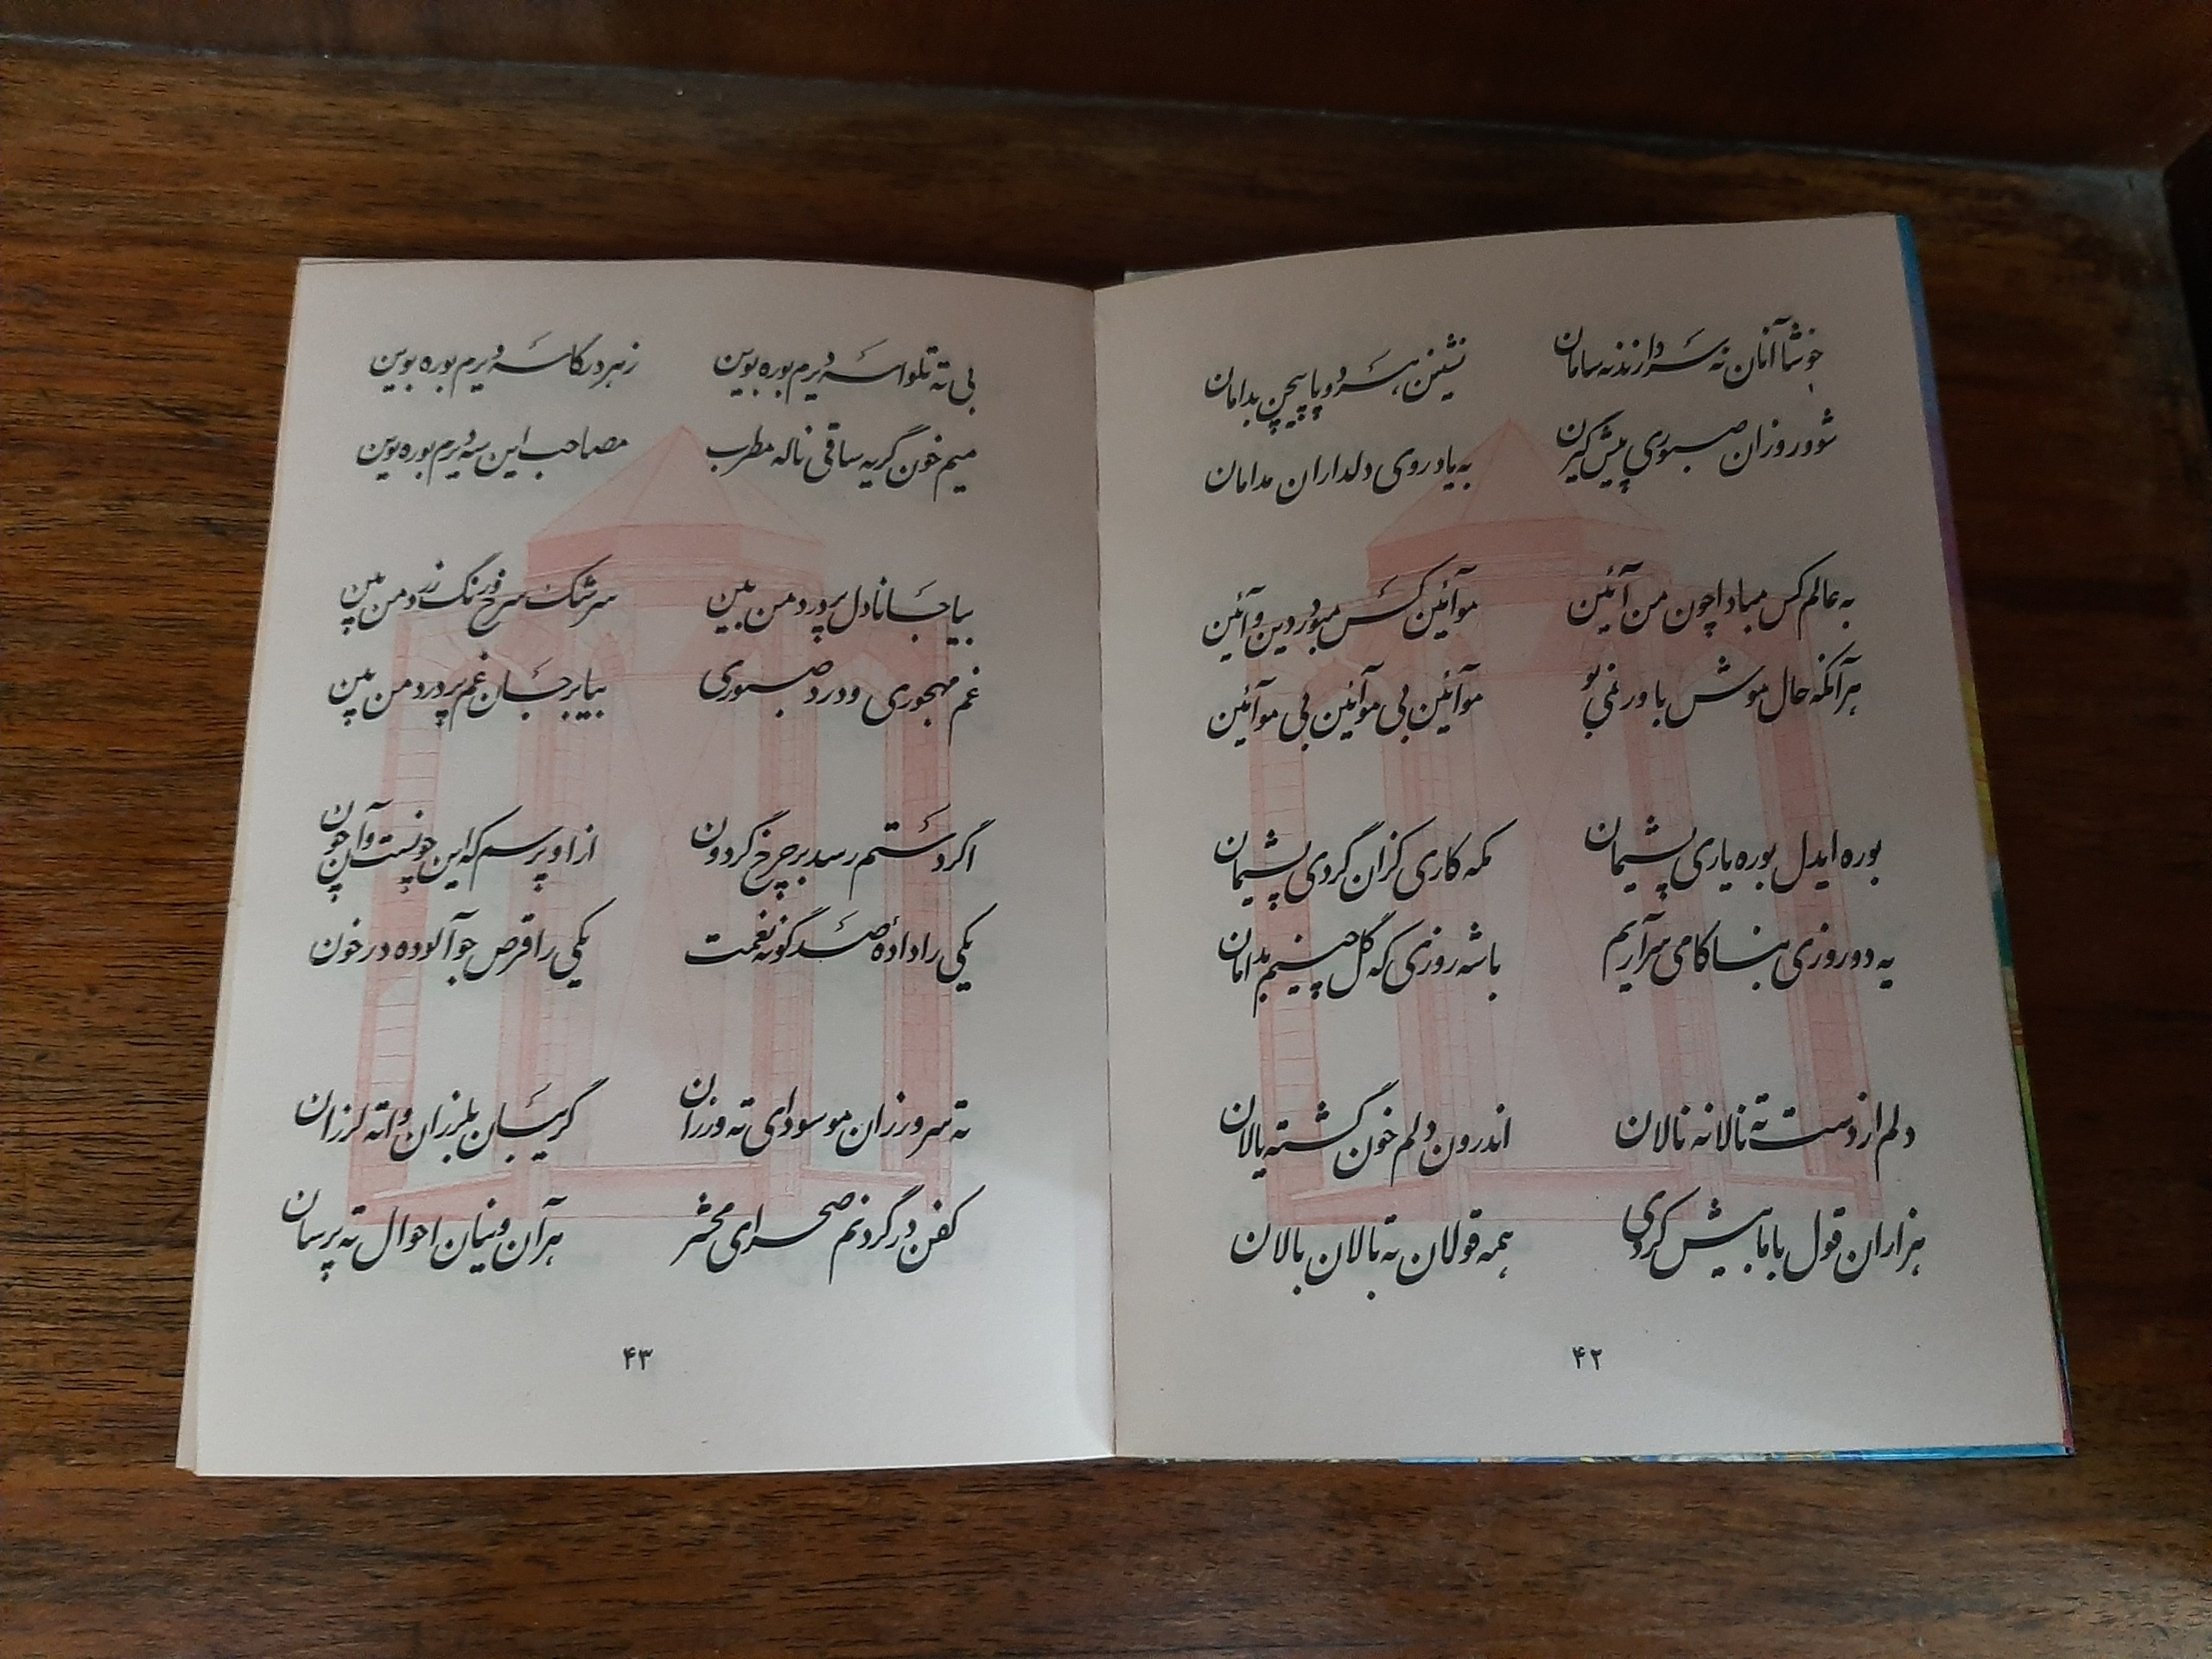 خوشا آنان نه سر دارند نه سامان نشینن هر دو پا پیچن بدامان
شو و روزان صبوری پیش گیرن به یاد روی دلداران مدامان
به عالم کس مبادا چون من آئین مو آئین کس مبو در دین و آئین
هر آنکه حال موش باور نمی بو مو آئین بی مو آئین بی مو آئین
بوره ایدل بوره یاری پشیمان مکه کاری کزان گردی پشیمان
یه دو روزی بناکامی سرآریم باشه روزی که گل چینیم بدامان
دلم از دست ته نالانه نالان اندرون دلم خون گشته پالان
هزاران قول با ما بیش کردی همه قولان ته بالان بالان
۴۲
بی ته تلواسه دیرم بوره بوین زهر در کاسه دیرم بوره بوین
میم خون گریه ساقی ناله مطرب مصاحب این سه دیرم بوره بوین
بیا جانا دل پردرد من بین سرشک سرخ و رنگ زرد من بین
غم مهجوری و درد صبوری بیا بر جان غم پرورد من بین
اگر دستم رسد بر چرخ گردون از او پرسم که این چونست و آن چون
یکی را داده صد گونه نعمت یکی را قرص جو آلوده در خون
ته سر ورزان مو سودای ته ورزان گریبان بلرزان واته لرزان
کفن در گردنم صحرای محشر هر آن وینان احوال ته پرسان
۴۳